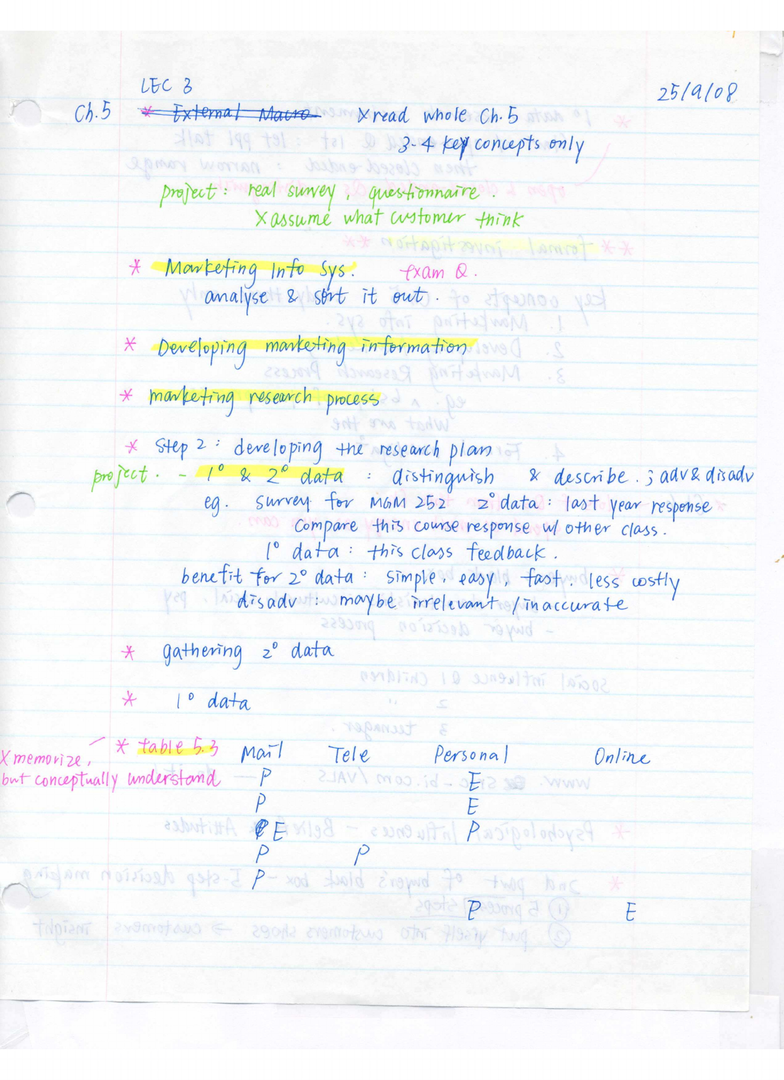 LEC 3
25/9/08
Ch.5 * External Macro X read whole Ch.5
3-4 key concepts only
project : real survey , questionnaire .
X assume what customer think
* Marketing Info Sys. Exam Q.
analyse & sort it out .
* Developing marketing information
* marketing research process
* Step 2 : developing the research plan
project . - 1° & 2° data : distinguish & describe . ; adv & disadv
eg. survey for MGM 252 2° data : last year response
Compare this course response w/ other class .
1° data : this class feedback .
benefit for 2° data : simple , easy , fast , less costly
disadv : maybe irrelevant / inaccurate
* gathering 2° data
* 1° data
* table 5.3 Mail Tele Personal Online
X memorize ,
but conceptually understand P E
P E
E P
P P
P
P E